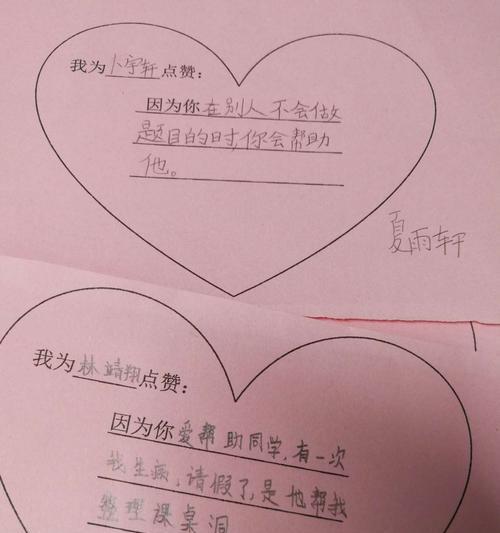 我为卜宇轩点赞：
因为你在别人不会做
是题目的时,你会帮助
他。
夏雨轩
我为林靖翔点赞：
因为你爱帮助同学,有一次
我生病,请假了,是他帮我
整理课桌洞